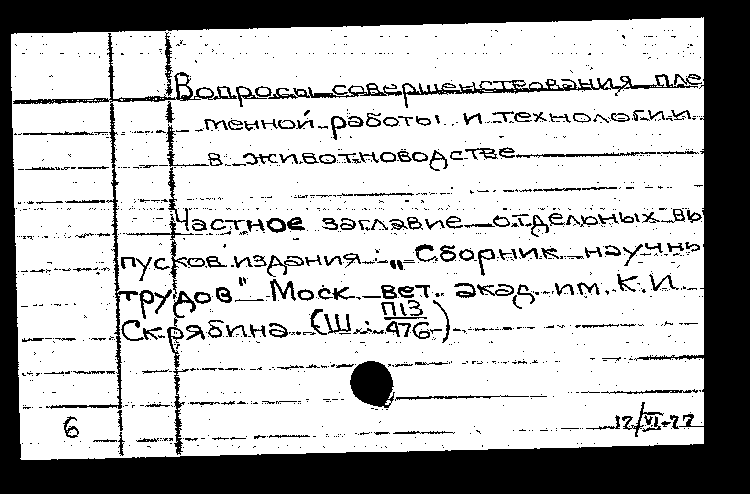 Вопросы совершенствования пле
менной работы и технологии
в животноводстве
Частное заглавие отдельных вы
пусков издания: „Сборник научны
трудов" Моск. вет. акад. им. К.И.
Скрябина (Ш: П13/476)
6 12/VI-77